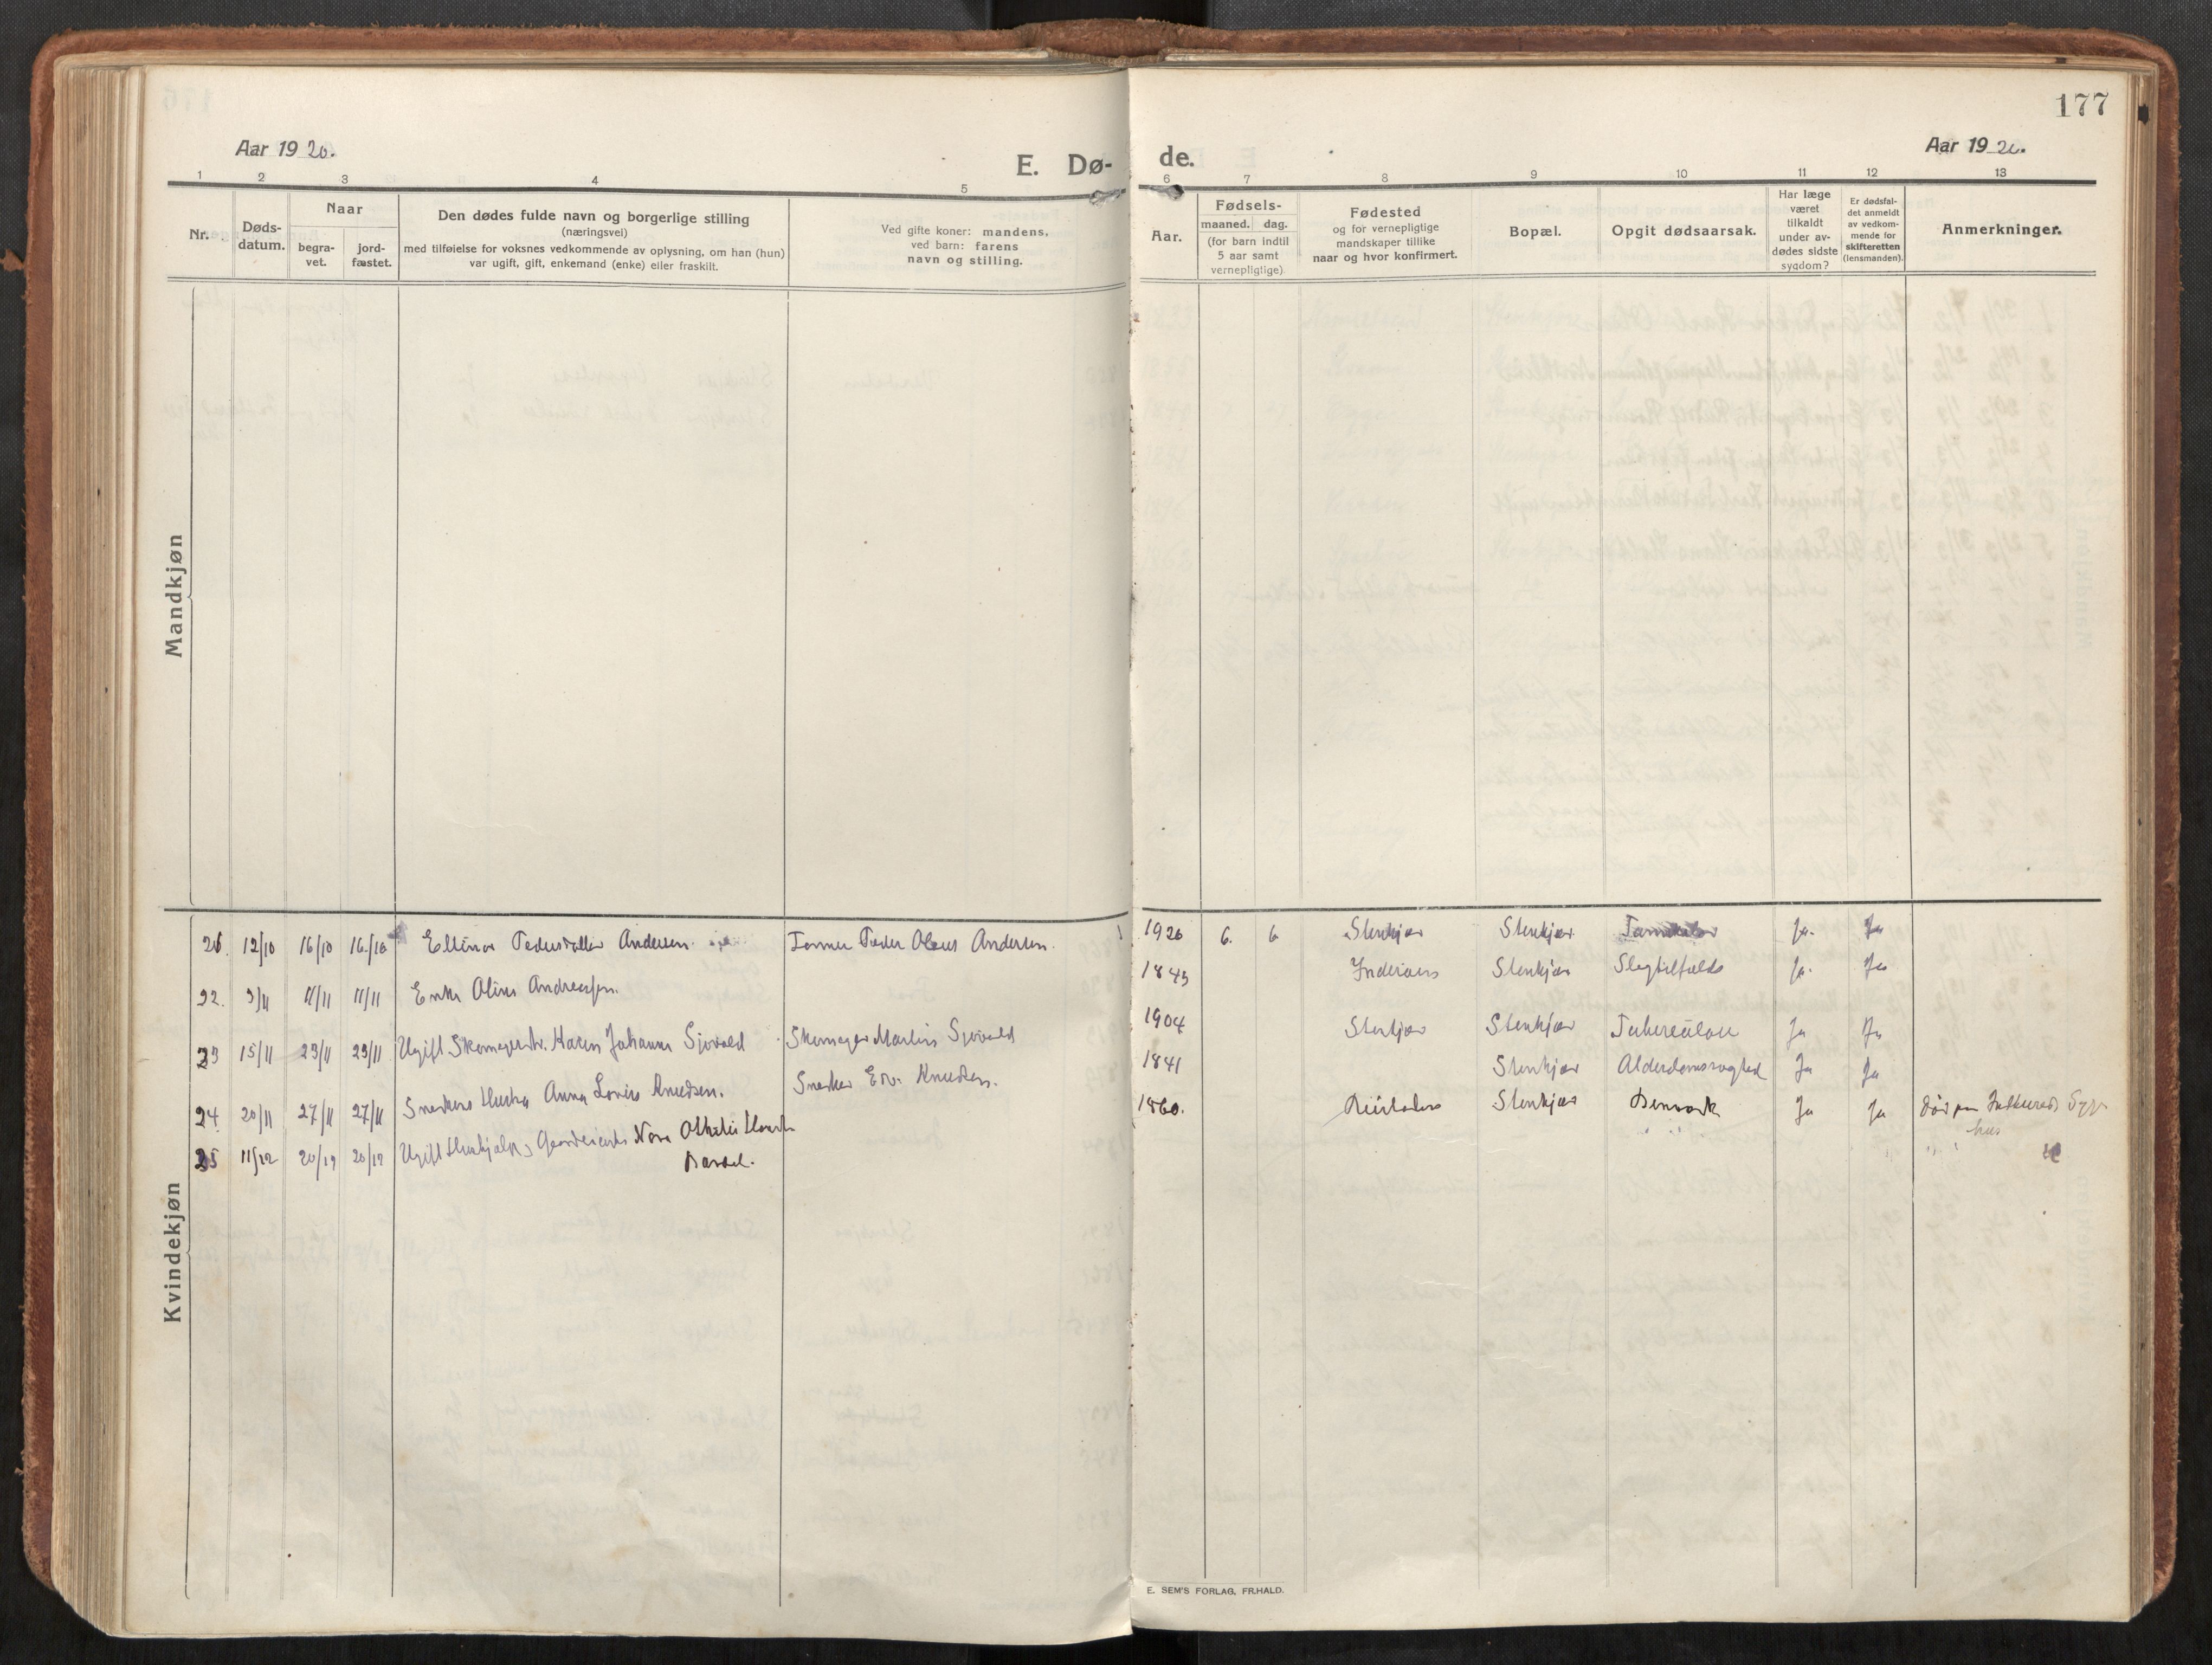 177
Aar 19 20.
E. Dø-
de.
Aar 19 20.
1 2 3 4 5 6 7 8 9 10 11 12 13
Nr.
Døds-
datum.
Naar
begra-
vet.
jord-
fæstet.
Den dødes fulde navn og borgerlige stilling
(næringsvei)
med tilføielse for voksnes vedkommende av oplysning, om han (hun)
var ugift, gift, enkemand (enke) eller fraskilt.
Ved gifte koner: mandens,
ved barn: farens
navn og stilling.
Aar.
Fødsels-
maaned. dag.
(for barn indtil
5 aar samt
vernepligtige)
Fødested
og for vernepligtige
mandskaper tillike
naar og hvor konfirmert.
Bopæl.
Opgit dødsaarsak.
Har læge
været
tilkaldt
under av-
dødes sidste
sygdom?
Er dødsfal-
det anmeldt
av vedkom-
mende for
skifteretten
(lensmanden).
Anmerkninger.
Mandkjøn
Kvindekjøn
21. 12/10 16/10 16/10 Ellinor Pedersdatter Andersen. Peder Olaus Andersen. 1920 6. 6 Stenkjær Stenkjær Ja. Ja
22. 9/11 11/11 Enke Andreassen. 1843 Inderøen Stenkjær Slagtilfælde Ja. Ja
23 15/11 23/11 23/11 Ugift Skomagerdtr. Karen Johanne Sjøvold Skomager Martin Sjøvold 1904 Stenkjær Stenkjær Tuberculose Ja Ja
24 20/11 27/11 27/11 Snekkers Hustru Anna Lovise Knudsen. Snekker Knudsen. 1841 Stenkjær Alderdomssvaghed Ja Ja
25 11/12 20/12 20/12 Ugift Nora Othelie 1860. Stenkjær Ja Ja Død paa Syge-
hus
E. SEM'S FORLAG, FR.HALD.